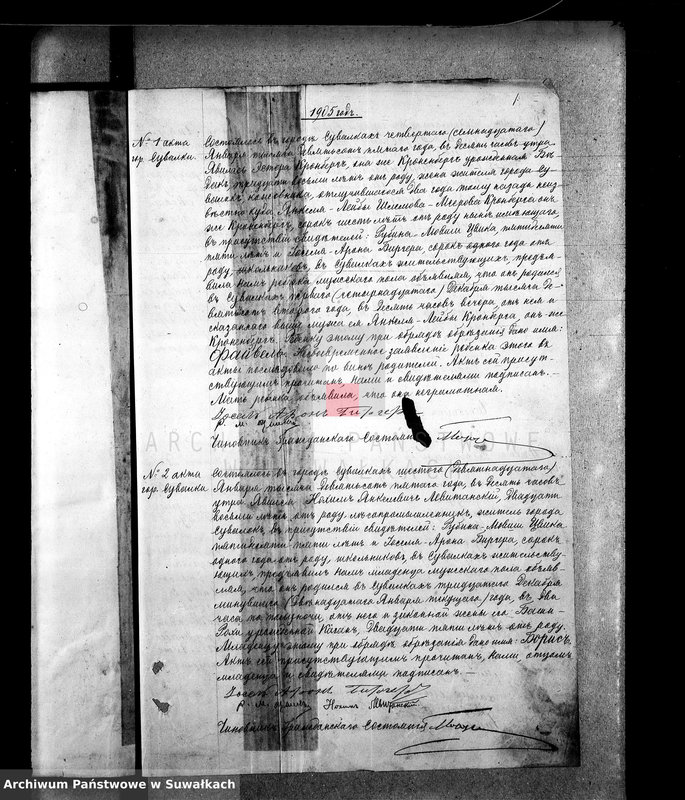 1905 годъ.
1
№ 1 акта
гор. Сувалки.
Состоялось въ городѣ Сувалкахъ четвертаго (семнадцатаго)
Января тысяча девятьсотъ пятаго года, въ десять часовъ утра.
Явилась Кронбергъ, она же Кроненбергъ урожденная
тридцати восьми лѣтъ отъ роду, жена жителя города Су-
валокъ, отлучившагося два года тому назадъ неиз-
вѣстно куда Янкеля-Лейбы Шлемова-Мееровa Кронберга онъ
же Кроненбергъ, сорокъ шесть лѣтъ отъ роду нынѣ имѣющаго,
въ присутствіи свидѣтелей: Рубина-Мовши Цвика, пятидесяти
пяти лѣтъ и Іоселя-Арона Виргера, сорокъ одного года отъ
роду, школьниковъ, въ Сувалкахъ жительствующихъ, предъя-
вила намъ ребенка мужескаго пола объявляя, что онъ родился
въ Сувалкахъ перваго (четырнадцатаго) Декабря тысяча де-
вятьсотъ второго года въ десять часовъ вечера, отъ нея и
сказаннаго выше мужа ея Янкеля-Лейбы Кронберга, онъ же
Кроненбергъ. Ребенку этому при обрядѣ обрѣзанія дано имя:
Файвель. Несвоевременное заявленіе ребенка этого въ
акты послѣдовало по винѣ родителей. Актъ сей присут-
ствующимъ прочитанъ, нами и свидѣтелями подписанъ.
Мать ребенка объявила, что она неграмотная.
Чиновникъ Гражданскаго Состоянія
ARCHIWUM PAŃSTWOWE
№ 2 акта
гор. Сувалки
Состоялось въ городѣ Сувалкахъ шестого (девятнадцатаго)
Января тысяча девятьсотъ пятаго года, въ десять часовъ
утра. Явился Нохимъ Янкелевичъ Левитанскій, двадцати
восьми лѣтъ отъ роду, лѣсопромышленникъ, житель города
Сувалокъ, въ присутствіи свидѣтелей: Рубина-Мовши Цвика
пятидесяти пяти лѣтъ и Іоселя-Арона Виргера, сорокъ
одного года отъ роду, школьниковъ, въ Сувалкахъ жительству-
ющихъ, предъявилъ намъ младенца мужескаго пола объяв-
ляя, что онъ родился въ Сувалкахъ тридцатаго Декабря
минувшаго (двѣнадцатаго Января текущаго) года, въ два
часа по полуночи, отъ него и законной жены его Баши-
Рохи урожденной Каганъ, двадцати пяти лѣтъ отъ роду.
Младенцу этому при обрядѣ обрѣзанія дано имя: Борисъ.
Актъ сей присутствующимъ прочитанъ, нами, отцомъ
младенца и свидѣтелями подписанъ.
Чиновникъ Гражданскаго Состоянія
Archiwum Państwowe w Suwałkach